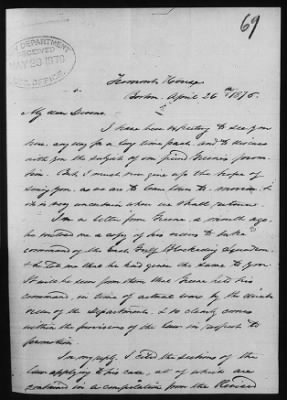 69
DEPARTMENT
RECEIVED
MAY 20 1876
OFFICE
Tremont House
Boston April 26th 1876.
My dear
I have been expecting to see you
here, any day for a long time past, and to discuss
with you the subject of our friend Greene's promo-
tion. But, I much now give up the hope of
seeing you, as we are to leave town to-morrow, &
it is very uncertain when we shall return.
In a letter from Greene, a month ago,
he invited me a copy of his orders to take
command of the East Gulf Blockading Squadron,
& he told me that he had given the same to you.
It will be seen from them that Greene held his
command, in time of actual war by the direct
orders of the Department, & so clearly comes
within the provisions of the law in respect to
promotion.
In my reply, I cited the sections of the
law applying to his case, all of which are
contained in a compilation from the Revised